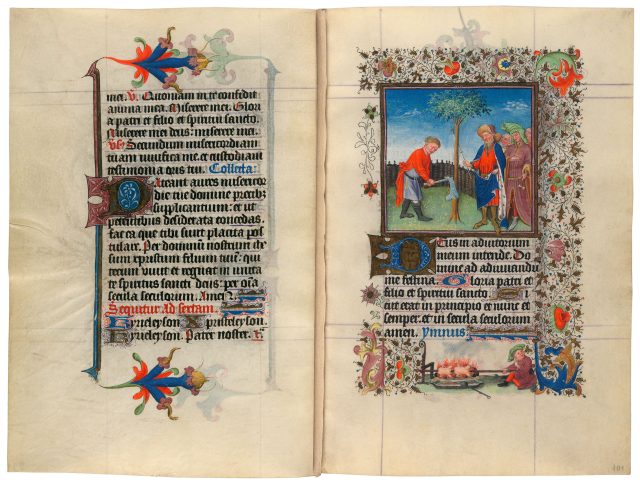 mei. V. Quoniam in te confidit
anima mea. Miserere mei. Glori
a patri et filio et spiritui sancto.
Miserere mei deus: miserere mei.
Vs. Secundum misericordiam
tuam vivifica me. et custodiam
testimonia oris tui. Collecta:
Pateant aures misericor
die tue domine precibz
supplicantium: et ut
petentibus desiderata concedas.
fac ea que tibi sunt placita pos
tulare. Per dominum nostrum ihe
sum xpristum filium tuum: qui
tecum vivit et regnat in unita
te spiritus sancti deus: per oia
secula seculorum. Amen.
Sequitur Ad sextam.
kyrieleyson. Xpristeleyson.
kyrieleyson. Pater noster.
Deus in adiutorium
meum intende. Do
mine ad adiuvandu
me festina. Gloria patri et
filio et spiritui sancto. Si
cut erat in principio et nunc et
semper. et in secula seculorum
amen. Ymnus
101